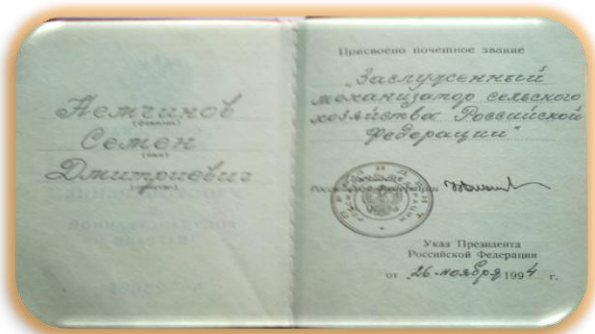 Немчинов
(фамилия)
Семен
(имя)
Дмитриевич
(отчество)
Присвоено почетное звание
„Заслуженный
механизатор сельского
хозяйства Российской
Федерации“
Российской Федерации
Указ Президента
Российской Федерации
от 26 ноября 1994 г.